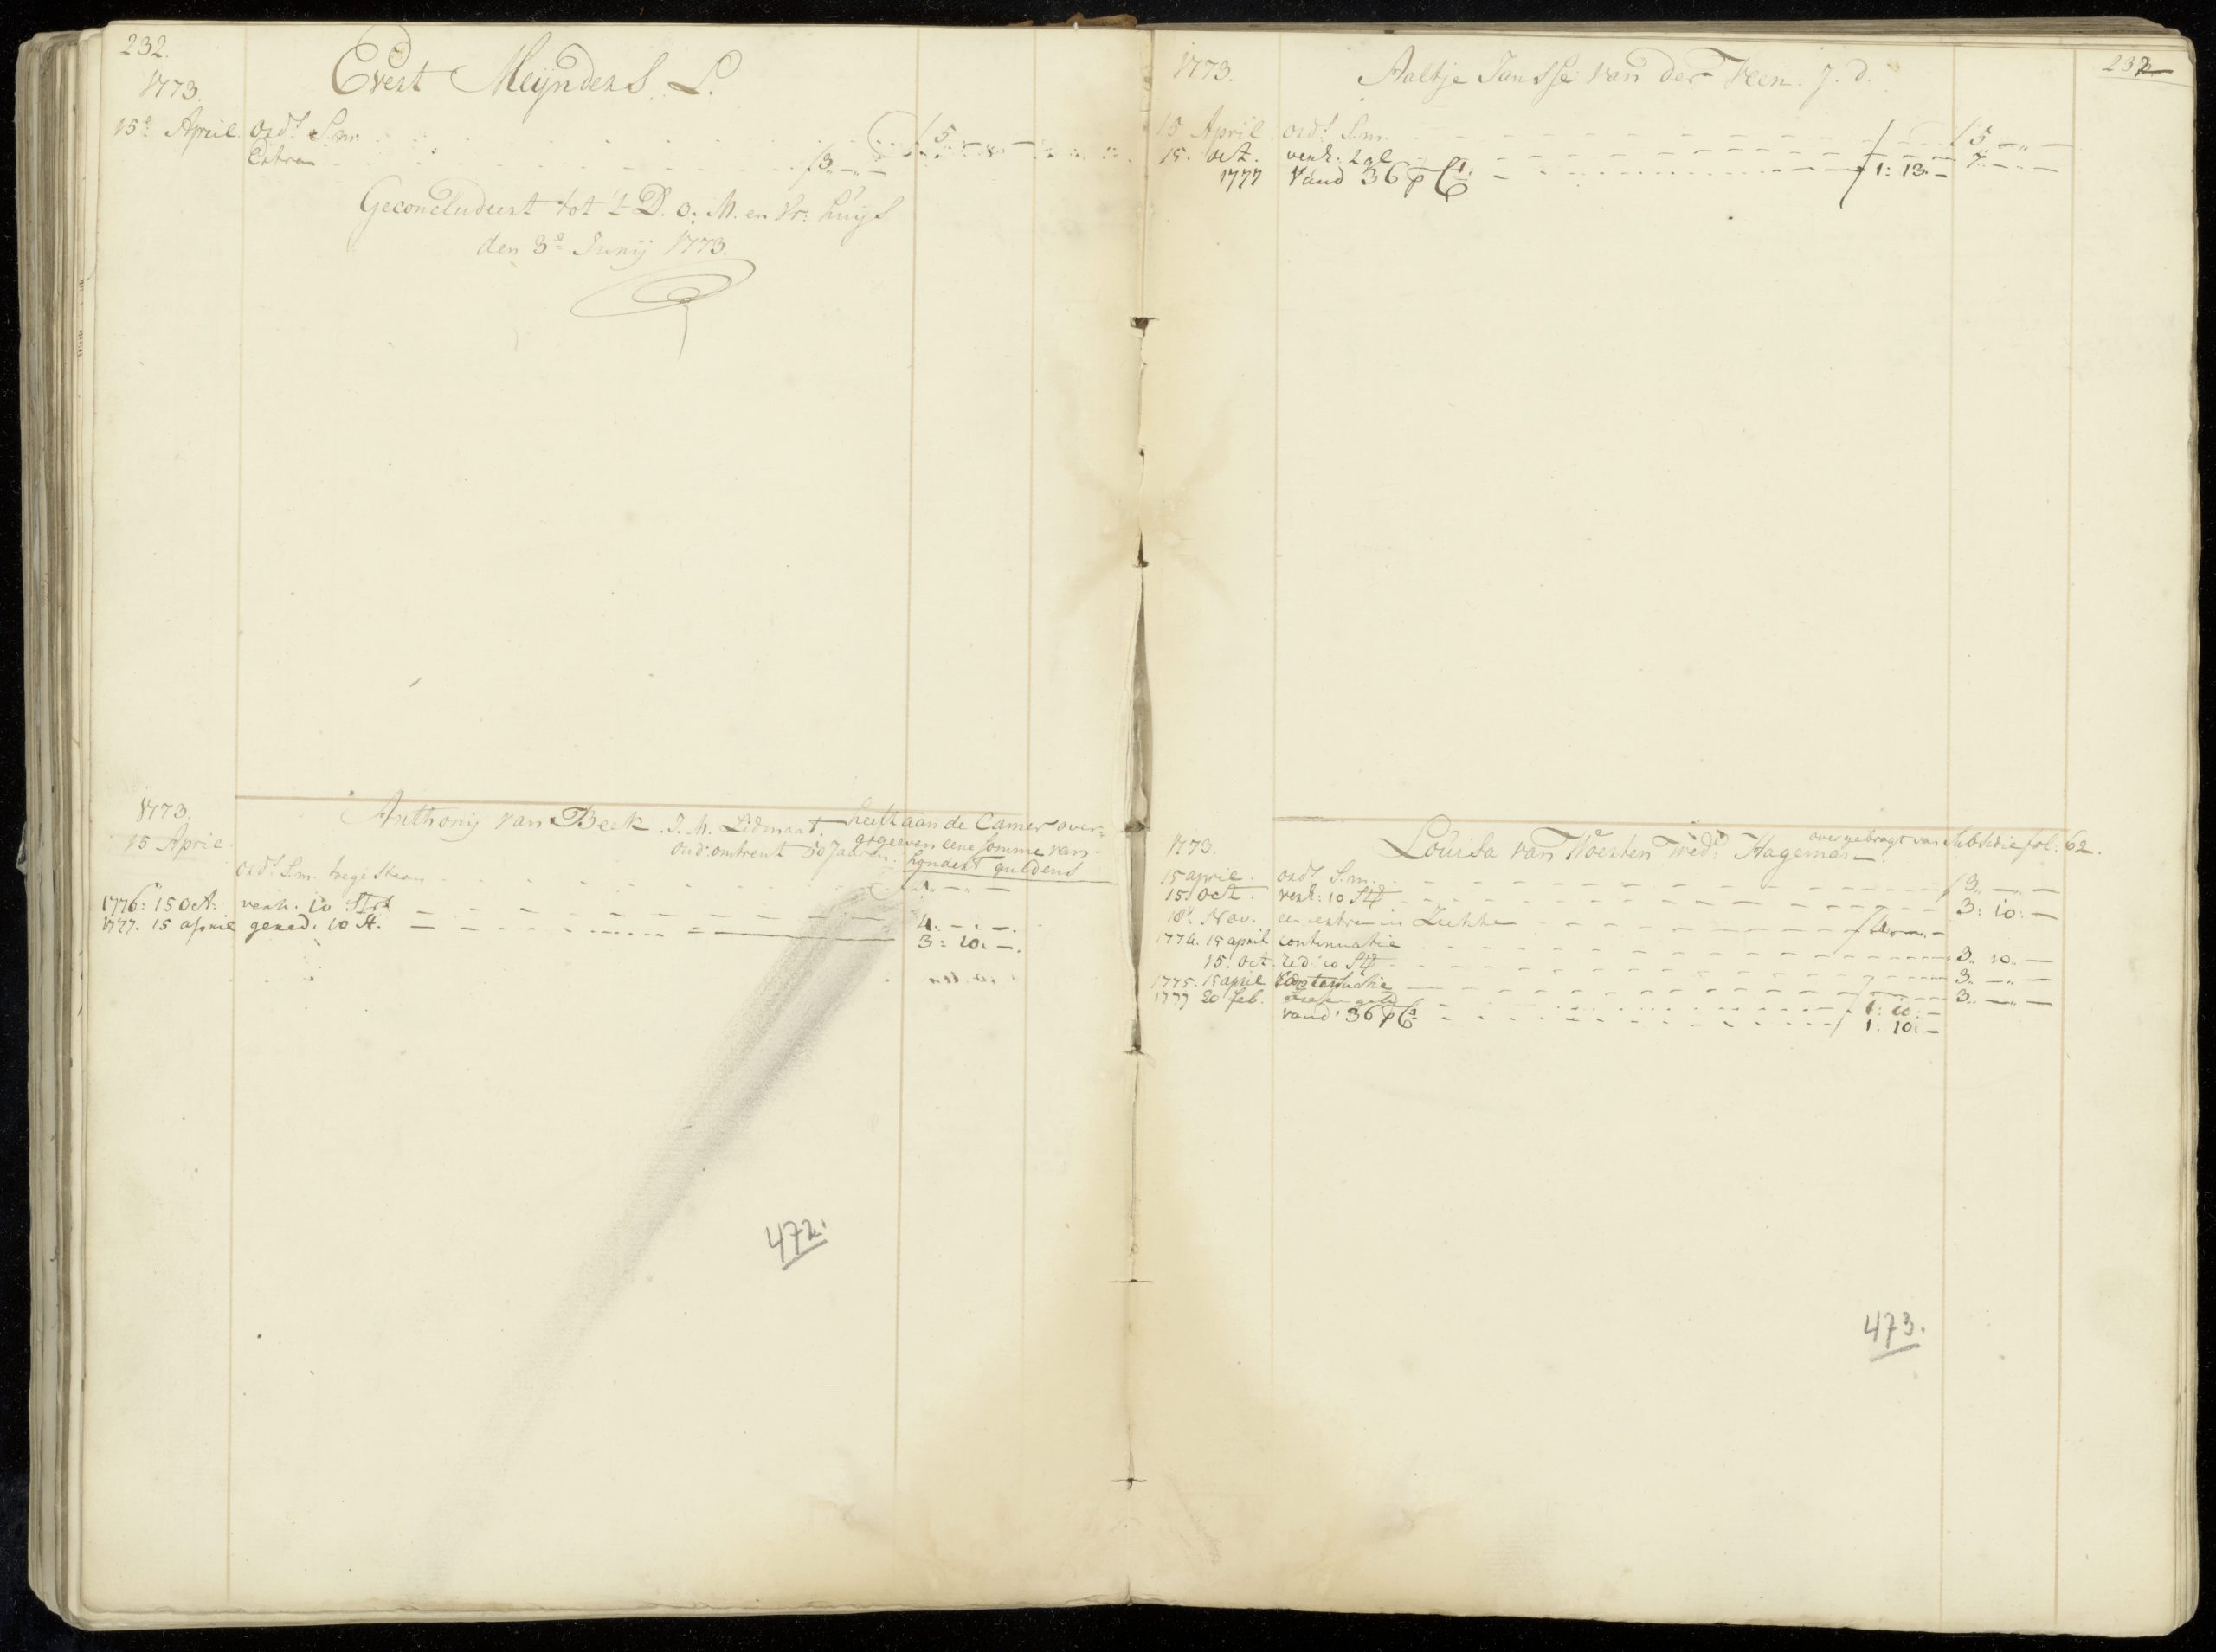 232.
1773. Evert Meynders L.
15e April. ord.s S.m. ƒ 5 „ — „ —
Extra ƒ 3 „ — „ —
Geconcludeert tot 't D. o: M. en Vr: huys
den 3e Junij 1773.
1773. Anthonij van Beek. J. M. Lidmaat. heeft aan de Camer over-
gegeeven eene somme van
oud omtrent 50 Jaar
hondert guldens
15 April.
ord.s S.m. toegestaan
1776: 15 Oct: verh. 10 St 4. — . —.
1777. 15 april gered. 10 St. 3: 10. —.
472.
232
1773. Aaltje Jansse van der Veen. J. d.
15 April. ord.s S.m. ƒ 5 „ — „ —
15. oct. verh. 2 gl 7 „ — „ —
1777 Vand 36 p C.t ƒ 1: 13 „ —
overgebragt van Subsidie fol. 62.
1773. Louisa van Woesten Wed.e Hageman
15 april. ord.s S.m. ƒ 3 „ — „ —
15 Oct. verh: 10 St 3: 10: —
18e Nov. een extra in Ziekte
1774. 15 april continuatie 3 „ 10 „ —
15. Oct. red: 10 St 3 „ — „ —
1775. 15 april Continuatie 3 „ — „ —
1777 20 feb. 1: 10: —
vand: 36 p C.t ƒ 1: 10: —
473.